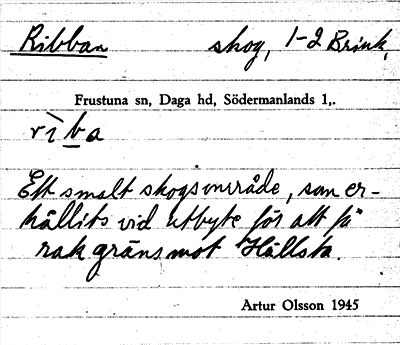 Ribban skog, 1-2 Brink,
Frustuna sn, Daga hd, Södermanlands l,.
rìba
Ett smalt skogsområde, som er-
hållits vid utbyte för att få
rak gräns mot Hållsta.
Artur Olsson 1945